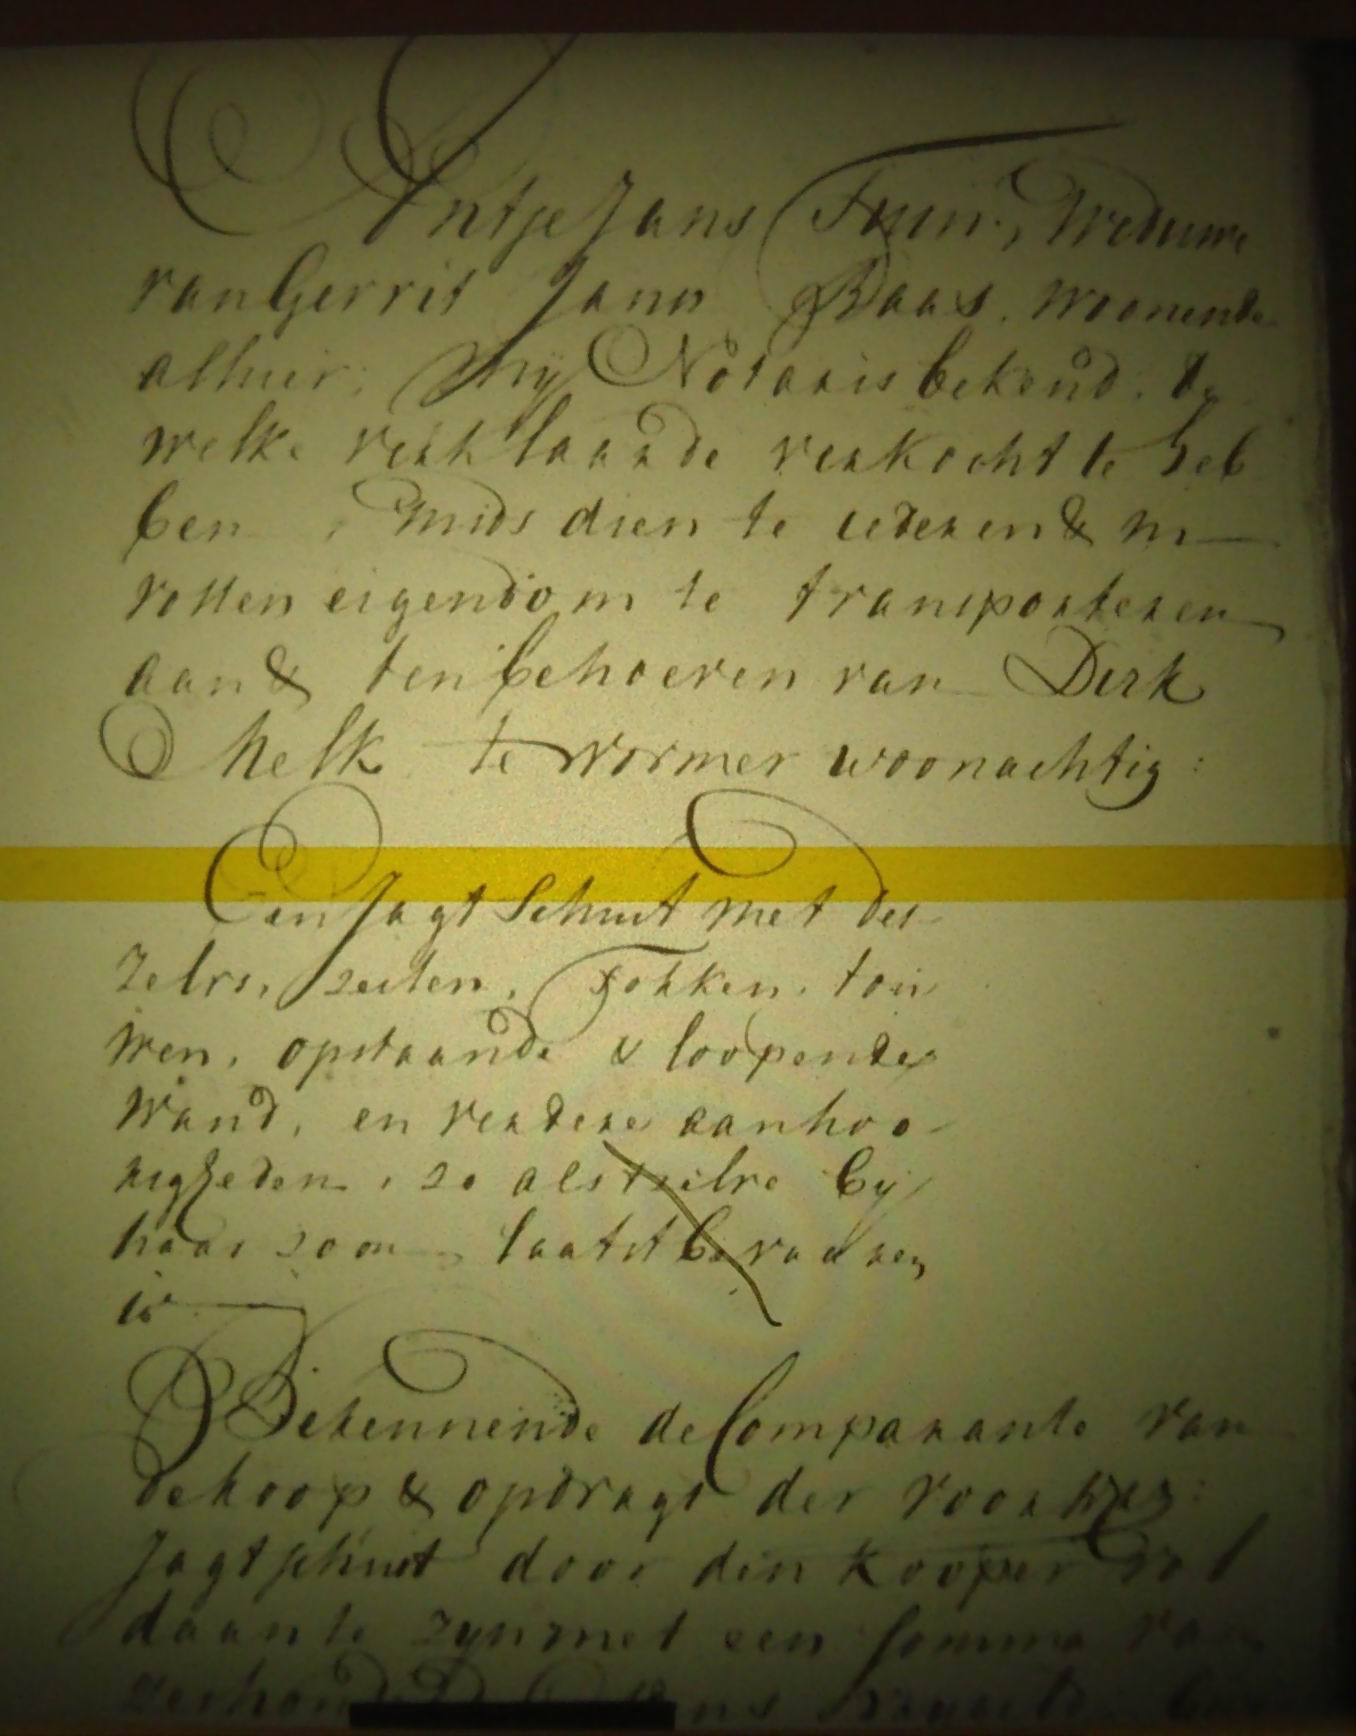 Antje Jans Tuin, Weduwe
van Gerrit Jans Baas, woonende
alhier, Mij Notaris bekend, de
welke verklaarde verkocht te heb
ben, mids dien te cederen & in
vollen eigendom te transporteren
aan & ten behoeven van Dirk
Melk te Wormer woonachtig:
Een Jagt Schuit met des
zelvs, zeilen, Fokken, tou
wen, opstaande & loopende
Wand, en verdere aanhoo-
righeden, zo als zelve bij
haar zoon laatst bevaaren
is
Bekennende de Comparante van
de koop & opdragt der voorsz:
Jagtschuit door den kooper vol
daan te zyn met een somma van